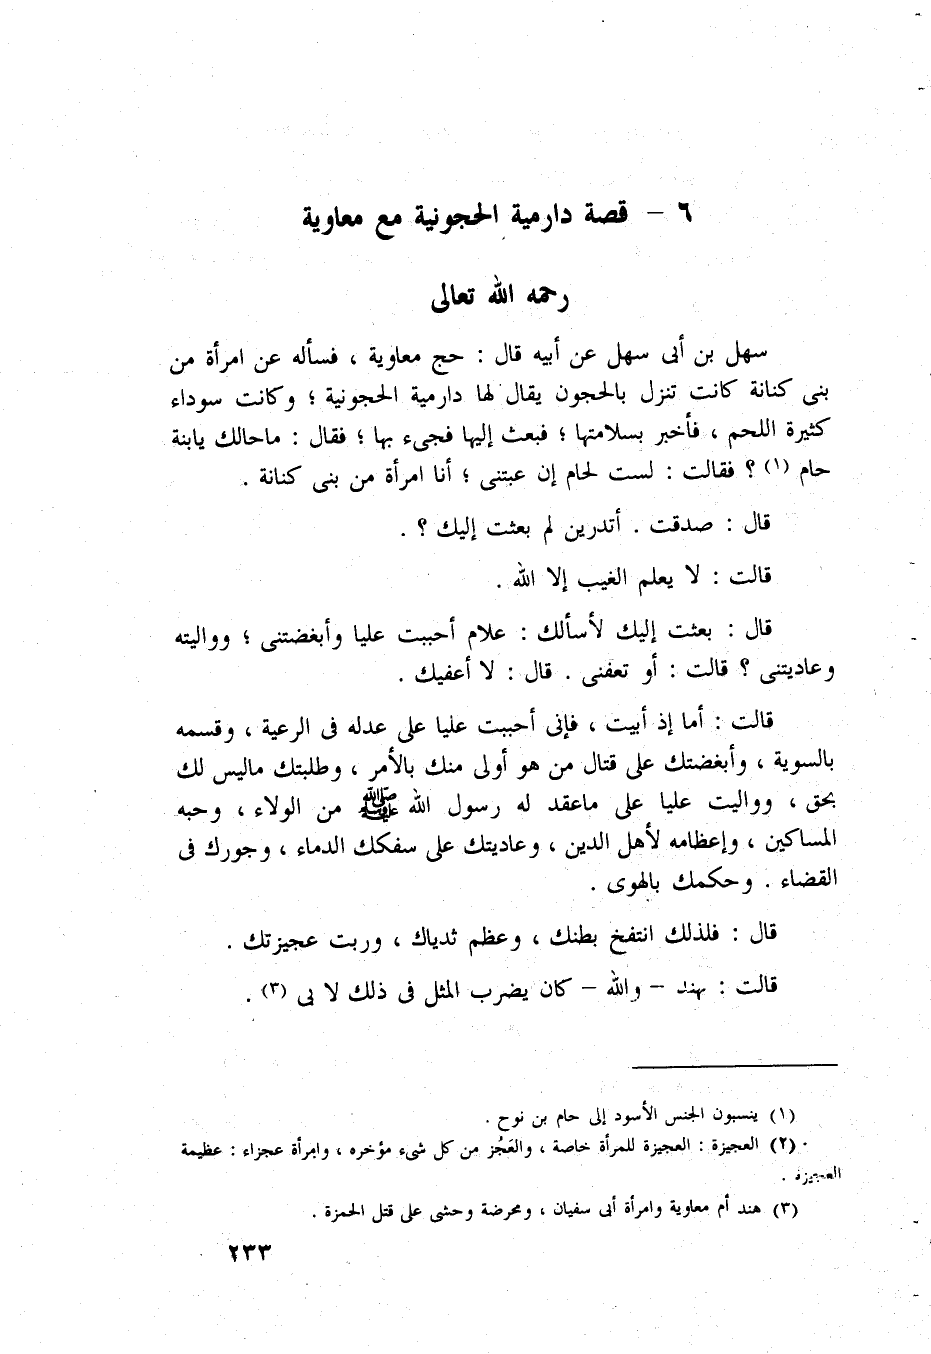 ٦ – قصة دارمية الحجونية مع معاوية
رحمه الله تعالى
سهل بن أبى سهل عن أبيه قال : حج معاوية ، فسأله عن امرأة من
بنى كنانة كانت تنزل بالحجون يقال لها دارمية الحجونية ؛ وكانت سوداء
كثيرة اللحم ، فأخبر بسلامتها ؛ فبعث إليها فجىء بها ؛ فقال : ماحالك يابنة
حام (١) ؟ فقالت : لست لحام إن عبتنى ؛ أنا امرأة من بنى كنانة .
قال : صدقت . أتدرين لم بعثت إليك ؟ .
قالت : لا يعلم الغيب إلا الله .
قال : بعثت إليك لأسألك : علام أحببت عليا وأبغضتنى ؛ وواليته
وعاديتنى ؟ قالت : أو تعفنى . قال : لا أعفيك .
قالت : أما إذ أبيت ، فإنى أحببت عليا على عدله فى الرعية ، وقسمه
بالسوية ، وأبغضتك على قتال من هو أولى منك بالأمر ، وطلبتك ماليس لك
بحق ، وواليت عليا على ماعقد له رسول الله ﷺ من الولاء ، وحبه
المساكين ، وإعظامه لأهل الدين ، وعاديتك على سفكك الدماء ، وجورك فى
القضاء . وحكمك بالهوى .
قال : فلذلك انتفخ بطنك ، وعظم ثدياك ، وربت عجيزتك .
قالت : بهند – والله – كان يضرب المثل فى ذلك لا بى (٣) .
(١) ينسبون الجنس الأسود إلى حام بن نوح .
(٢) العجيزة : العجيزة للمرأة خاصة ، والعَجُز من كل شىء مؤخره ، وامرأة عجزاء : عظيمة
العجيزة .
(٣) هند أم معاوية وامرأة أبى سفيان ، ومحرضة وحشى على قتل الحمزة .
٢٣٣